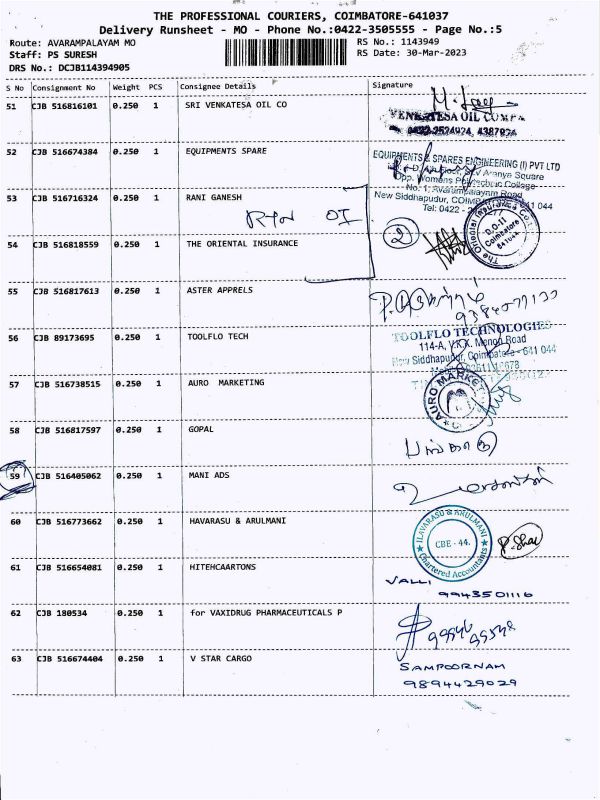 THE PROFESSIONAL COURIERS, COIMBATORE-641037
Delivery Runsheet - MO - Phone No.:0422-3505555 - Page No.:5
Route: AVARAMPALAYAM MO
RS No.: 1143949
Staff: PS SURESH
RS Date: 30-Mar-2023
DRS No.: DCJB114394905
S No Consignment No Weight PCS Consignee Details Signature
51 CJB 516816101 0.250 1 SRI VENKATESA OIL CO
VENKATESA OIL COMPA
0422-2524924, 4387924
52 CJB 516674384 0.250 1 EQUIPMENTS SPARE
EQUIPMENTS & SPARES ENGINEERING (I) PVT LTD
Aranya Square
Opp. Womens Polytechnic College
53 CJB 516716324 0.250 1 RANI GANESH
No. 1, Avarampalayam Road,
New Siddhapudur, 641 044
Tel: 0422 -
OI
2
The Oriental Insurance Co
D.O-11
Coimbatore
641044
54 CJB 516818559 0.250 1 THE ORIENTAL INSURANCE
55 CJB 516817613 0.250 1 ASTER APPRELS
56 CJB 89173695 0.250 1 TOOLFLO TECH
TOOLFLO TECHNOLOGIES
114-A, V.K.K. Menon Road
New Siddhapudur, Coimbatore - 641 044
57 CJB 516738515 0.250 1 AURO MARKETING
AURO MARKET
58 CJB 516817597 0.250 1 GOPAL
59 CJB 516405062 0.250 1 MANI ADS
60 CJB 516773662 0.250 1 HAVARASU & ARULMANI
ILAVARASU & ARULMANI
CBE - 44.
Chartered Accountants
61 CJB 516654081 0.250 1 HITEHCAARTONS
VALLI
9943501116
62 CJB 180534 0.250 1 for VAXIDRUG PHARMACEUTICALS P
63 CJB 516674404 0.250 1 V STAR CARGO
SAMPOORNAM
9894429029